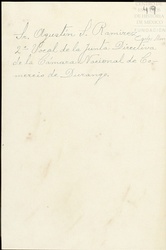 49
Sr. Agustin S. Ramirez
2º Vocal de la Junta Directiva
de la Cámara Nacional de Co-
mercio de Durango.